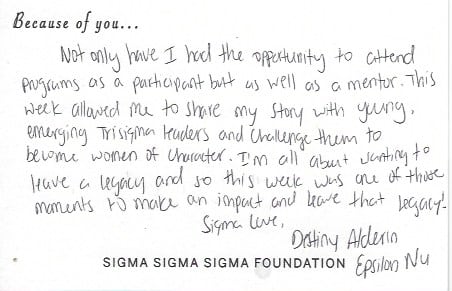 Because of you...
Not only have I had the opportunity to attend
programs as a participant but as well as a mentor. This
week allowed me to share my story with young,
emerging Trisigma leaders and challenge them to
become women of character. I'm all about wanting to
leave a legacy and so this week was one of those
moments to make an impact and leave that legacy!
Sigma Love,
Destiny Alderin
SIGMA SIGMA SIGMA FOUNDATION Epsilon Nu